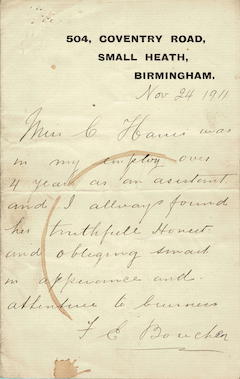 504, COVENTRY ROAD,
SMALL HEATH,
BIRMINGHAM.
Nov 24 1911
Miss C Harris was
in my employ over
4 years as an asistant
and I allways found
her truthfull Honest
and obliging smart
in apperance and
attentive to business
F C Boucher